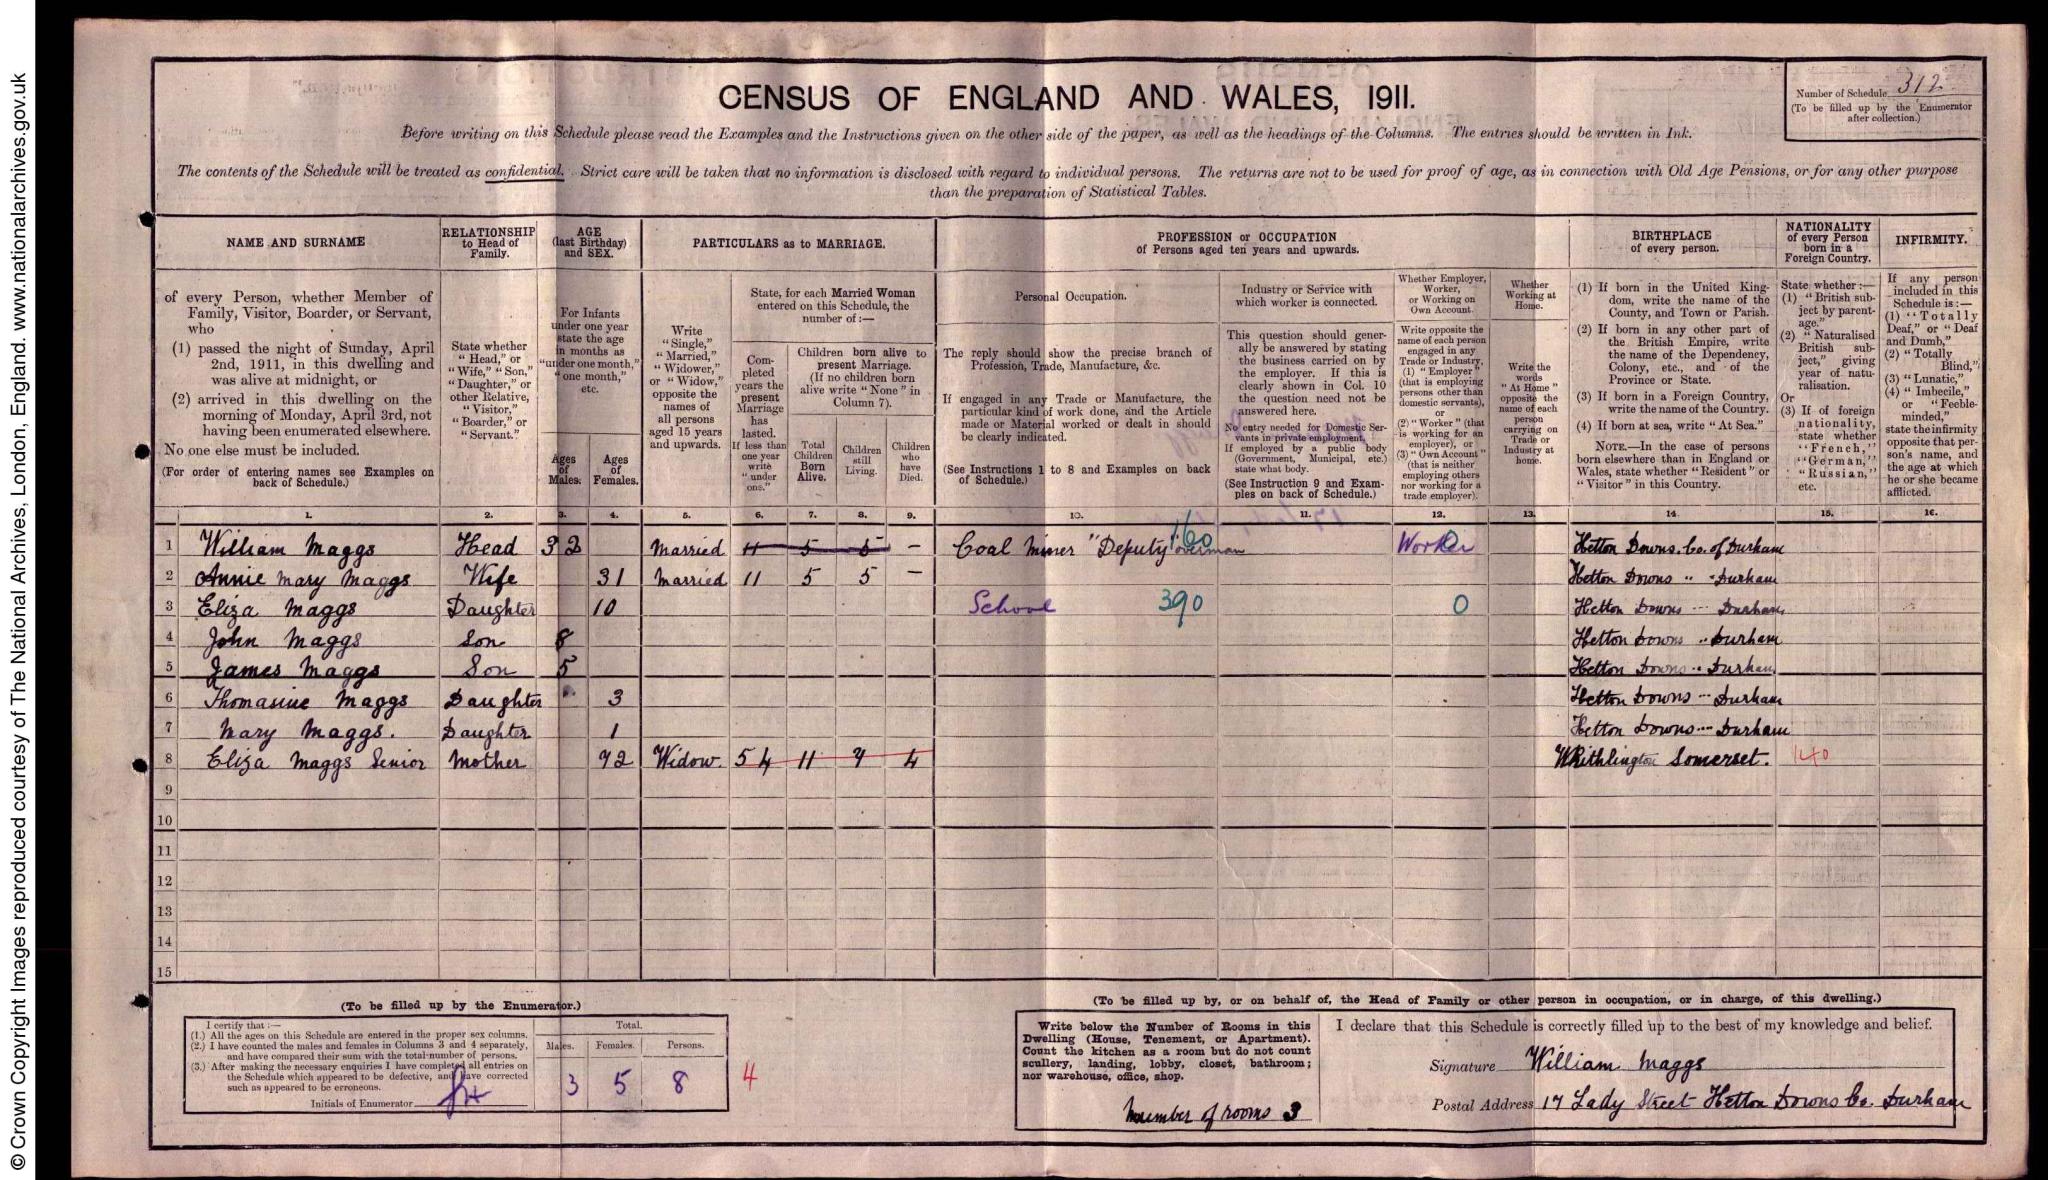 © Crown Copyright Images reproduced courtesy of The National Archives, London, England. www.nationalarchives.gov.uk
CENSUS OF ENGLAND AND WALES, 1911.
Number of Schedule 312
(To be filled up by the Enumerator
after collection.)
Before writing on this Schedule please read the Examples and the Instructions given on the other side of the paper, as well as the headings of the Columns. The entries should be written in Ink.
The contents of the Schedule will be treated as confidential. Strict care will be taken that no information is disclosed with regard to individual persons. The returns are not to be used for proof of age, as in connection with Old Age Pensions, or for any other purpose
than the preparation of Statistical Tables.
NAME AND SURNAME
of every Person, whether Member of
Family, Visitor, Boarder, or Servant,
who
(1) passed the night of Sunday, April
2nd, 1911, in this dwelling and
was alive at midnight, or
(2) arrived in this dwelling on the
morning of Monday, April 3rd, not
having been enumerated elsewhere.
No one else must be included.
(For order of entering names see Examples on
back of Schedule.)
RELATIONSHIP
to Head of
Family.
State whether
"Head," or
"Wife," "Son,"
"Daughter," or
other Relative,
"Visitor,"
"Boarder," or
"Servant."
AGE
(last Birthday)
and SEX.
For Infants
under one year
state the age
in months as
"under one month,"
"one month,"
etc.
Ages
of
Males.
Ages
of
Females.
PARTICULARS as to MARRIAGE.
Write
"Single,"
"Married,"
"Widower,"
or "Widow,"
opposite the
names of
all persons
aged 15 years
and upwards.
State, for each Married Woman
entered on this Schedule, the
number of:—
Com-
pleted
years the
present
Marriage
has
lasted.
If less than
one year
write
"under
one."
Children born alive to
present Marriage.
(If no children born
alive write "None" in
Column 7).
Total
Children
Born
Alive.
Children
still
Living.
Children
who
have
Died.
PROFESSION or OCCUPATION
of Persons aged ten years and upwards.
Personal Occupation.
The reply should show the precise branch of
Profession, Trade, Manufacture, &c.
If engaged in any Trade or Manufacture, the
particular kind of work done, and the Article
made or Material worked or dealt in should
be clearly indicated.
(See Instructions 1 to 8 and Examples on back
of Schedule.)
Industry or Service with
which worker is connected.
This question should gener-
ally be answered by stating
the business carried on by
the employer. If this is
clearly shown in Col. 10
the question need not be
answered here.
No entry needed for Domestic Ser-
vants in private employment.
If employed by a public body
(Government, Municipal, etc.)
state what body.
(See Instruction 9 and Exam-
ples on back of Schedule.)
Whether Employer,
Worker,
or Working on
Own Account.
Write opposite the
name of each person
engaged in any
Trade or Industry,
(1) "Employer"
(that is employing
persons other than
domestic servants),
or
(2) "Worker" (that
is working for an
employer), or
(3) "Own Account"
(that is neither
employing others
nor working for a
trade employer).
Whether
Working at
Home.
Write the
words
"At Home"
opposite the
name of each
person
carrying on
Trade or
Industry at
home.
BIRTHPLACE
of every person.
(1) If born in the United King-
dom, write the name of the
County, and Town or Parish.
(2) If born in any other part of
the British Empire, write
the name of the Dependency,
Colony, etc., and of the
Province or State.
(3) If born in a Foreign Country,
write the name of the Country.
(4) If born at sea, write "At Sea."
NOTE.—In the case of persons
born elsewhere than in England or
Wales, state whether "Resident" or
"Visitor" in this Country.
NATIONALITY
of every Person
born in a
Foreign Country.
State whether:—
(1) "British sub-
ject by parent-
age."
(2) "Naturalised
British sub-
ject," giving
year of natu-
ralisation.
Or
(3) If of foreign
nationality,
state whether
"French,"
"German,"
"Russian,"
etc.
INFIRMITY.
If any person
included in this
Schedule is:—
(1) "Totally
Deaf," or "Deaf
and Dumb,"
(2) "Totally
Blind,"
(3) "Lunatic,"
(4) "Imbecile,"
or "Feeble-
minded,"
state the infirmity
opposite that per-
son's name, and
the age at which
he or she became
afflicted.
1. 2. 3. 4. 5. 6. 7. 8. 9. 10. 11. 12. 13. 14. 15. 16.
1 William Maggs Head 32 Married 11 5 5 – Coal Miner "Deputy overman 160 Worker 0 Hetton Downs. Co. of Durham
2 Annie Mary Maggs Wife 31 Married 11 5 5 – Hetton Downs " " Durham
3 Eliza Maggs Daughter 10 School 390 0 Hetton Downs Durham
4 John Maggs Son 8 Hetton Downs " Durham
5 James Maggs Son 5 Hetton Downs " Durham
6 Thomasine Maggs Daughter 3 Hetton Downs Durham
7 Mary Maggs. Daughter 1 Hetton Downs Durham
8 Eliza Maggs Senior Mother 72 Widow. 54 11 7 4 Writhlington Somerset. 140
9
10
11
12
13
14
15
(To be filled up by the Enumerator.)
I certify that:—
(1.) All the ages on this Schedule are entered in the proper sex columns.
(2.) I have counted the males and females in Columns 3 and 4 separately,
and have compared their sum with the total number of persons.
(3.) After making the necessary enquiries I have completed all entries on
the Schedule which appeared to be defective, and have corrected
such as appeared to be erroneous.
Initials of Enumerator
Total.
Males. Females. Persons.
3 5 8
4
(To be filled up by, or on behalf of, the Head of Family or other person in occupation, or in charge, of this dwelling.)
Write below the Number of Rooms in this
Dwelling (House, Tenement, or Apartment).
Count the kitchen as a room but do not count
scullery, landing, lobby, closet, bathroom;
nor warehouse, office, shop.
Number of rooms 3
I declare that this Schedule is correctly filled up to the best of my knowledge and belief.
Signature William Maggs
Postal Address 17 Lady Street Hetton Downs Co. Durham